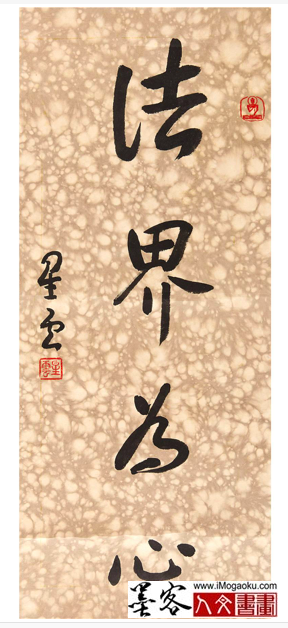 法界為心
星雲
www.iMogaoku.com
墨客
人文書畫